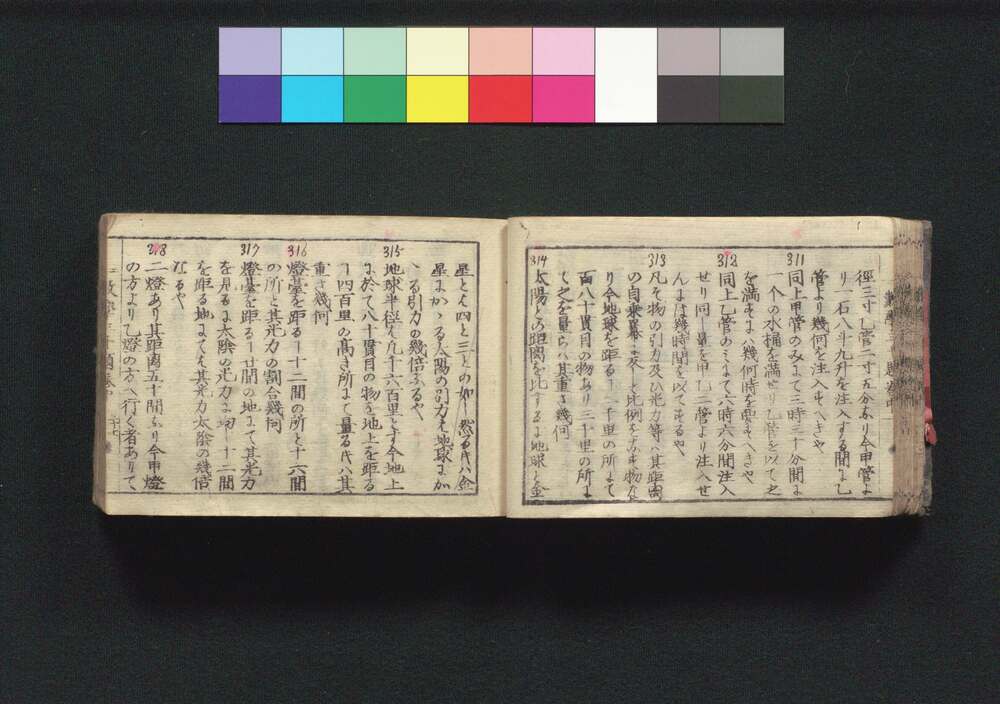 徑三寸乙管二寸五分なり今甲管よ
り一石八斗九升を注入する間に乙
管より幾何を注入すべきや
311
同上甲管のみにて三時三十分間に
一个の水桶を満せり乙管を以て之
を満すには幾何時を要すべきや
312
同上乙管のみにて六時六分間注入
せり同一量を甲乙二管より注入せ
んには幾時間を以てするや
313
凡そ物の引力及び光力等は其距離
の自乗冪に反して比例をなす物なり
今地球を距る一二千里の所にて
百八十貫目の物あり三千里の所に
て之を量らば其重さ幾何
314
太陽との距離を比するに地球と金
星とは四と三との如し然る片は金
星にかゝる太陽の引力は地球にか
ゝる引力の幾倍なるや
315
地球半径を凡千六百里とす今地上
に於て八十貫目の物を地上を距る
ヿ四百里の高き所にて量る片は其
重さ幾何
316
燈臺を距るヿ十二間の所と十六間
の所と其光力の割合幾何
317
燈臺を距るヿ廿間の地にて其光力
を見るに太陰の光力に均しヿ十二間
を距る地にては其光力太陰の幾倍
なるや
318
二燈あり其距離五十間なり今甲燈
の方より乙燈の方へ行く者ありて